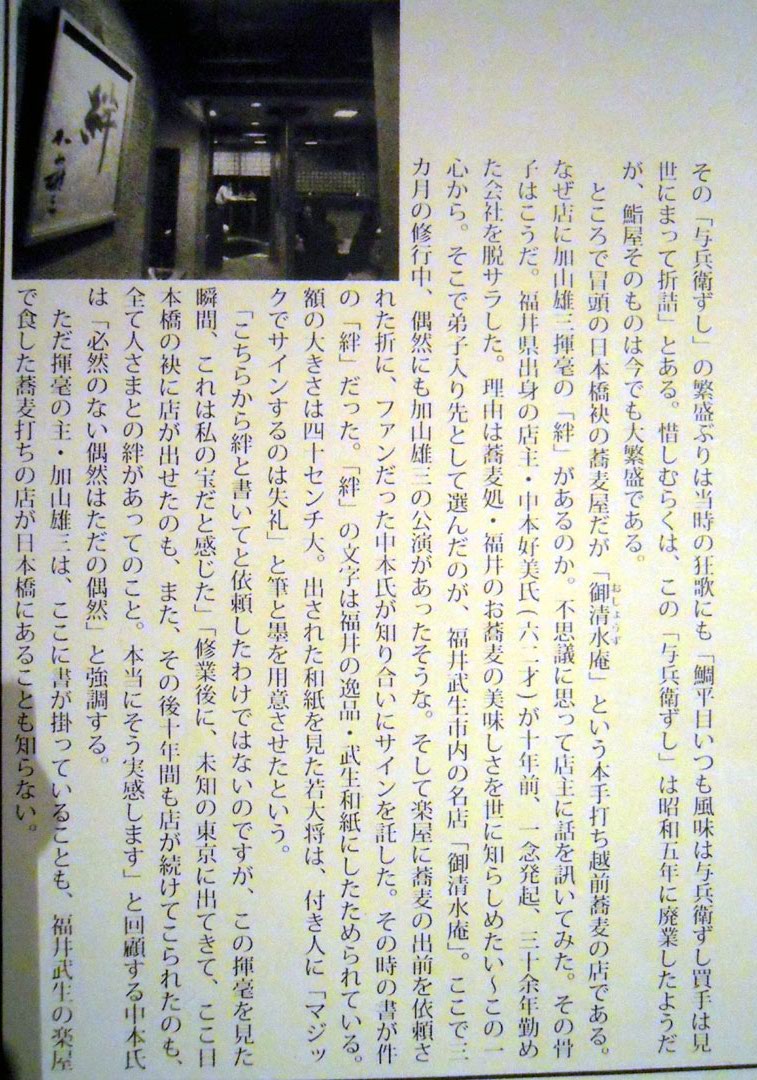 その「与兵衛ずし」の繁盛ぶりは当時の狂歌にも「鯛平目いつも風味は与兵衛ずし買手は見
世にまって折詰」とある。惜しむらくは、この「与兵衛ずし」は昭和五年に廃業したようだ
が、鮨屋そのものは今でも大繁盛である。
ところで冒頭の日本橋袂の蕎麦屋だが「御清水庵」という本手打ち越前蕎麦の店である。
おしょうず
なぜ店に加山雄三揮毫の「絆」があるのか。不思議に思って店主に話を訊いてみた。その骨
子はこうだ。福井県出身の店主・中本好美氏(六二才)が十年前、一念発起、三十余年勤め
た会社を脱サラした。理由は蕎麦処・福井のお蕎麦の美味しさを世に知らしめたい〜この一
心から。そこで弟子入り先として選んだのが、福井武生市内の名店「御清水庵」。ここで三
カ月の修行中、偶然にも加山雄三の公演があったそうな。そして楽屋に蕎麦の出前を依頼さ
れた折に、ファンだった中本氏が知り合いにサインを託した。その時の書が件
の「絆」だった。「絆」の文字は福井の逸品・武生和紙にしたためられている。
額の大きさは四十センチ大。出された和紙を見た若大将は、付き人に「マジッ
クでサインするのは失礼」と筆と墨を用意させたという。
「こちらから絆と書いてと依頼したわけではないのですが、この揮毫を見た
瞬間、これは私の宝だと感じた」「修業後に、未知の東京に出てきて、ここ日
本橋の袂に店が出せたのも、また、その後十年間も店が続けてこられたのも、
全て人さまとの絆があってのこと。本当にそう実感します」と回顧する中本氏
は「必然のない偶然はただの偶然」と強調する。
ただ揮毫の主・加山雄三は、ここに書が掛っていることも、福井武生の楽屋
で食した蕎麦打ちの店が日本橋にあることも知らない。
絆